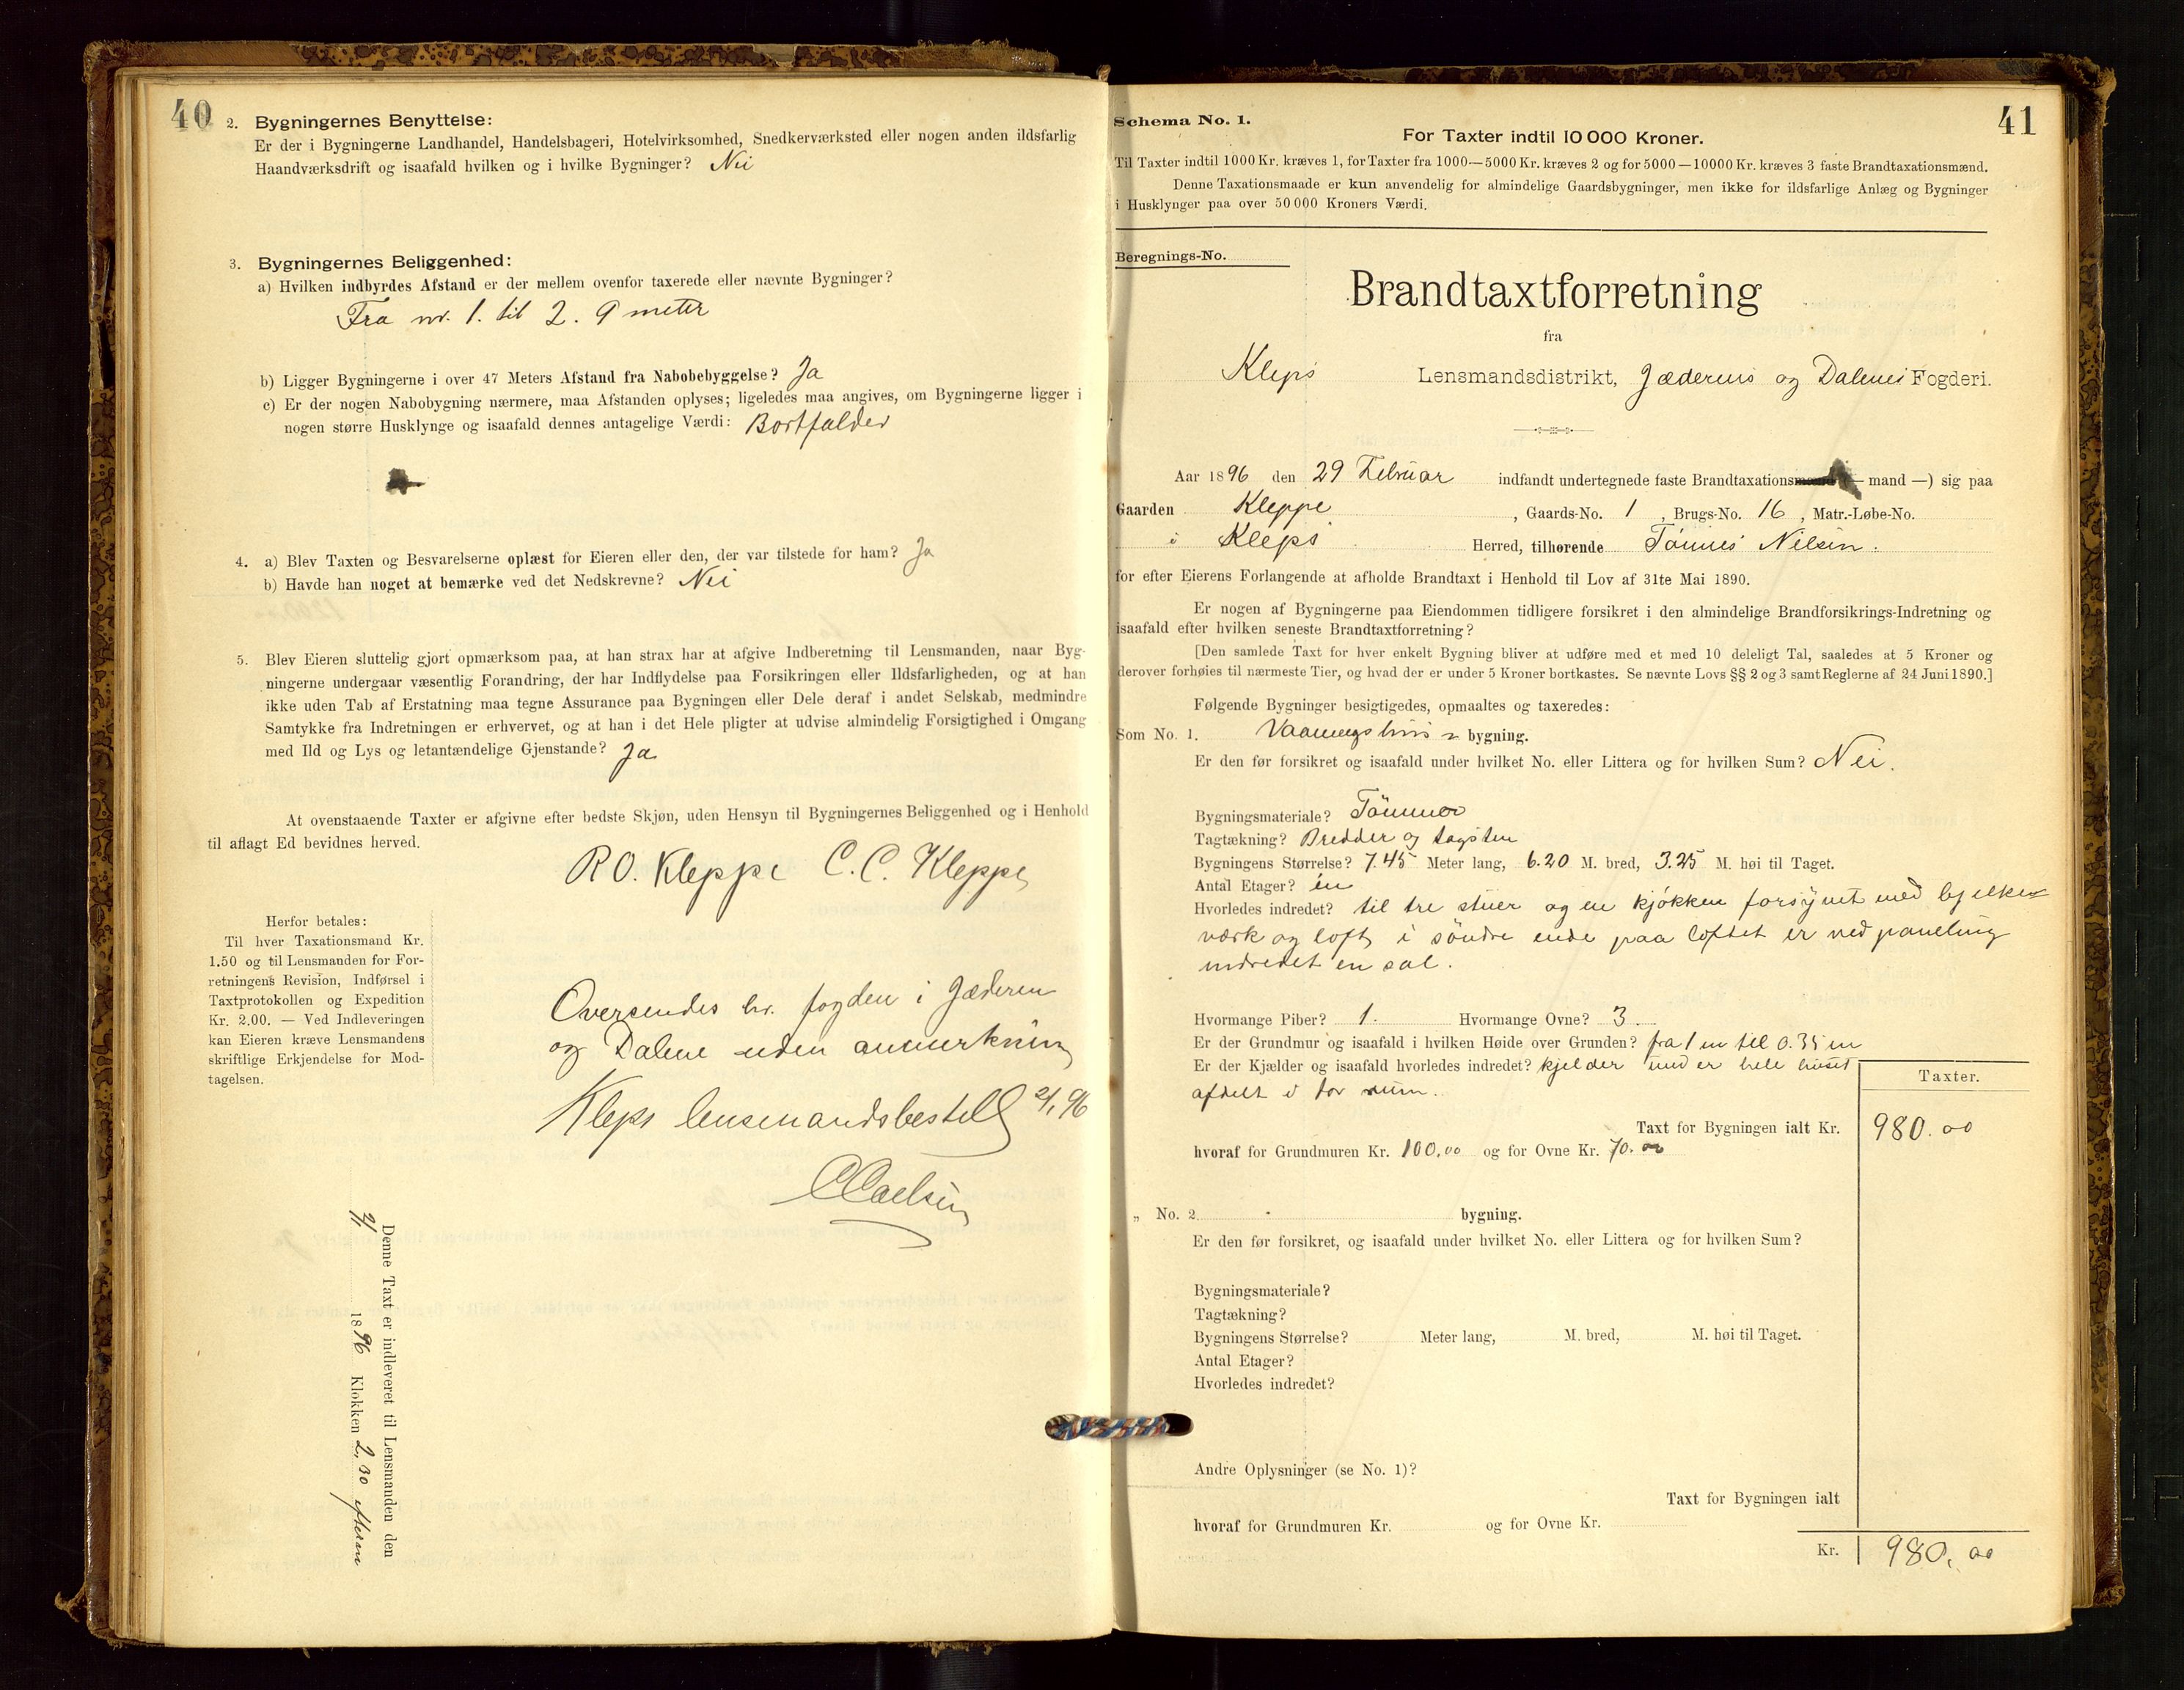 40
2. Bygningernes Benyttelse:
Er der i Bygningerne Landhandel, Handelsbageri, Hotelvirksomhed, Snedkerværksted eller nogen anden ildsfarlig
Haandværksdrift og isaafald hvilken og i hvilke Bygninger? Nei
3. Bygningernes Beliggenhed:
a) Hvilken indbyrdes Afstand er der mellem ovenfor taxerede eller nævnte Bygninger?
Fra nr. 1. til 2. 9 meter
b) Ligger Bygningerne i over 47 Meters Afstand fra Nabobebyggelse? Ja
c) Er der nogen Nabobygning nærmere, maa Afstanden oplyses; ligeledes maa angives, om Bygningerne ligger i
nogen større Husklynge og isaafald dennes antagelige Værdi: Bortfalder
4. a) Blev Taxten og Besvarelserne oplæst for Eieren eller den, der var tilstede for ham? Ja
b) Havde han noget at bemærke ved det Nedskrevne? Nei
5. Blev Eieren sluttelig gjort opmærksom paa, at han strax har at afgive Indberetning til Lensmanden, naar Byg-
ningerne undergaar væsentlig Forandring, der har Indflydelse paa Forsikringen eller Ildsfarligheden, og at han
ikke uden Tab af Erstatning maa tegne Assurance paa Bygningen eller Dele deraf i andet Selskab, medmindre
Samtykke fra Indretningen er erhvervet, og at han i det Hele pligter at udvise almindelig Forsigtighed i Omgang
med Ild og Lys og letantændelige Gjenstande? Ja
At ovenstaaende Taxter er afgivne efter bedste Skjøn, uden Hensyn til Bygningernes Beliggenhed og i Henhold
til aflagt Ed bevidnes herved.
R O. Kleppe C. C. Kleppe
Herfor betales:
Til hver Taxationsmand Kr.
1.50 og til Lensmanden for For-
retningens Revision, Indførsel i
Taxtprotokollen og Expedition
Kr. 2.00. — Ved Indleveringen
kan Eieren kræve Lensmandens
skriftlige Erkjendelse for Mod-
tagelsen.
Oversendes hr. fogden i Jæderen
og Dalene uden anmerkning
Kleps lensmandsbestill 2/1 96
Denne Taxt er indleveret til Lensmanden den
2/1 1896 Klokken 2,30 efterm
41
Schema No. 1.
For Taxter indtil 10 000 Kroner.
Til Taxter indtil 1000 Kr. kræves 1, for Taxter fra 1000—5000 Kr. kræves 2 og for 5000—10000 Kr. kræves 3 faste Brandtaxationsmænd.
Denne Taxationsmaade er kun anvendelig for almindelige Gaardsbygninger, men ikke for ildsfarlige Anlæg og Bygninger
i Husklynger paa over 50 000 Kroners Værdi.
Beregnings-No.
Brandtaxtforretning
fra
Kleps Lensmandsdistrikt, Jæderens og Dalenes Fogderi.
Aar 1896 den 29 Februar indfandt undertegnede faste Brandtaxations — mand —) sig paa
Gaarden Kleppe, Gaards-No. 1, Brugs-No. 16, Matr.-Løbe-No.
i Kleps Herred, tilhørende Tönnes Nilsen.
for efter Eierens Forlangende at afholde Brandtaxt i Henhold til Lov af 31te Mai 1890.
Er nogen af Bygningerne paa Eiendommen tidligere forsikret i den almindelige Brandforsikrings-Indretning og
isaafald efter hvilken seneste Brandtaxtforretning?
[Den samlede Taxt for hver enkelt Bygning bliver at udføre med et med 10 deleligt Tal, saaledes at 5 Kroner og
derover forhøies til nærmeste Tier, og hvad der er under 5 Kroner bortkastes. Se nævnte Lovs §§ 2 og 3 samt Reglerne af 24 Juni 1890.]
Følgende Bygninger besigtigedes, opmaaltes og taxeredes:
Som No. 1. Vaaningshus bygning.
Er den før forsikret og isaafald under hvilket No. eller Littera og for hvilken Sum? Nei.
Bygningsmateriale? Tömmer
Tagtækning? Bredder og tagsten
Bygningens Størrelse? 7.45 Meter lang, 6.20 M. bred, 3.25 M. høi til Taget.
Antal Etager? én
Hvorledes indredet? til tre stuer og en kjøkken forsynet med bjelke
værk og loft, i söndre ende paa loftet er ved paneling
indredet en sal.
Hvormange Piber? 1. Hvormange Ovne? 3.
Er der Grundmur og isaafald i hvilken Høide over Grunden? fra 1 m til 0.35 m
Er der Kjælder og isaafald hvorledes indredet? kjelder under hele huset
afdelt i tor rum.
Taxter.
Taxt for Bygningen ialt Kr. 980.00
hvoraf for Grundmuren Kr. 100,00 og for Ovne Kr. 70.00
„ No. 2 bygning.
Er den før forsikret, og isaafald under hvilket No. eller Littera og for hvilken Sum?
Bygningsmateriale?
Tagtækning?
Bygningens Størrelse? Meter lang, M. bred, M. høi til Taget.
Antal Etager?
Hvorledes indredet?
Andre Oplysninger (se No. 1)?
Taxt for Bygningen ialt
hvoraf for Grundmuren Kr. og for Ovne Kr.
Kr. 980,00